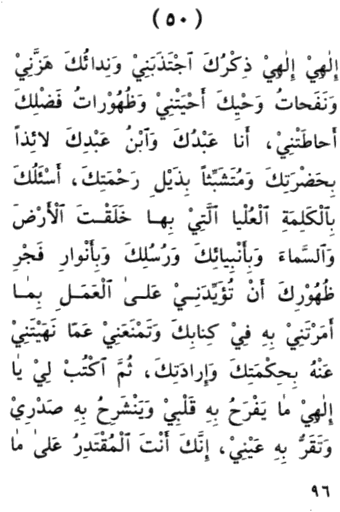 (٥٠)
إِلٰهِيْ إِلٰهِيْ ذِكْرُكَ ٱجْتَذَبَنِيْ وَنِدائُكَ هَزَّنِيْ
وَنَفَحاتُ وَحْيِكَ أَحْيَتْنِيْ وَظُهُوْراتُ فَضْلِكَ
أَحاطَتْنِيْ، أَنا عَبْدُكَ وَٱبْنُ عَبْدِكَ لائِذاً
بِحَضْرَتِكَ وَمُتَشَبِّثاً بِذَيْلِ رَحْمَتِكَ، أَسْئَلُكَ
بِٱلْكَلِمَةِ ٱلْعُلْيا ٱلَّتِيْ بِها خَلَقْتَ ٱلْأَرْضَ
وَٱلسَّماءَ وَبِأَنْبِيائِكَ وَرُسُلِكَ وَبِأَنْوارِ فَجْرِ
ظُهُوْرِكَ أَنْ تُؤَيِّدَنِيْ عَلىٰ ٱلْعَمَلِ بِمٰا
أَمَرْتَنِيْ بِهِ فِيْ كِتابِكَ وَتَمْنَعَنِيْ عَمّا نَهَيْتَنِيْ
عَنْهُ بِحِكْمَتِكَ وَإِرادَتِكَ، ثُمَّ ٱكْتُبْ لِيْ يا
إِلٰهِيْ ما يَفْرَحُ بِهِ قَلْبِيْ وَيَنْشَرِحُ بِهِ صَدْرِيْ
وَتَقَرُّ بِهِ عَيْنِيْ، إِنَّكَ أَنْتَ ٱلْمُقْتَدِرُ عَلىٰ ما
٩٦